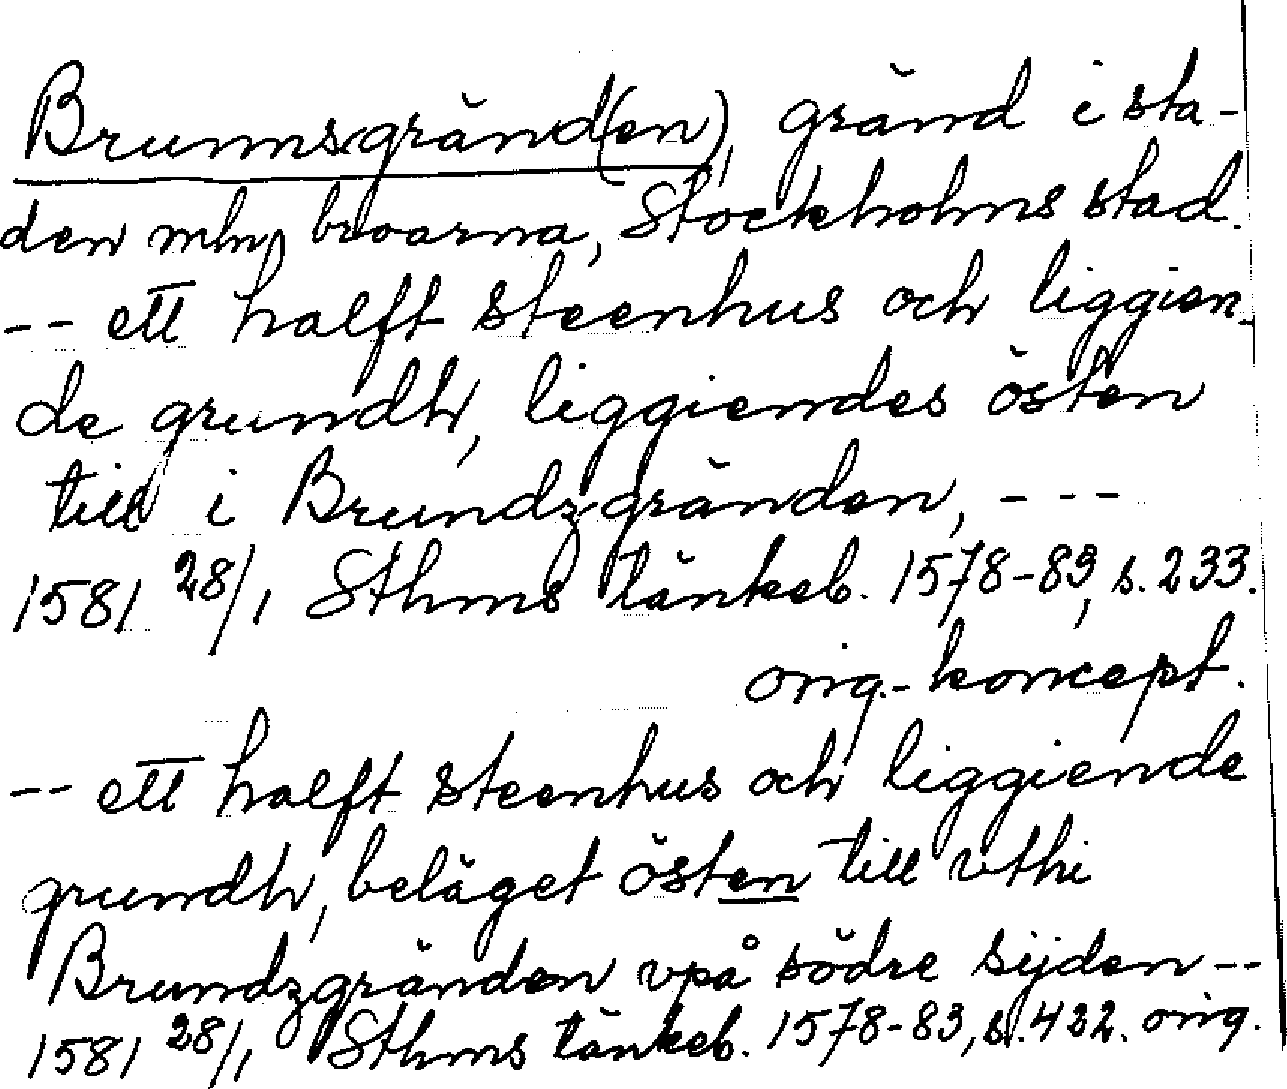 Brunnsgränd(en), gränd i sta-
den mln broarna, Stockholms stad.
-- ett halft steenhus och liggien-
de grundh, liggiendes östen
till i Brundzgränden, ---
1581 28/1 Sthms tänkeb. 1578-83, s. 233.
orig.-koncept.
-- ett halft steenhus och liggiende
grundh, beläget östen till vthi
Brundzgränden vpå södre sijden --
1581 28/1 Sthms tänkeb. 1578-83, s. 432. orig.